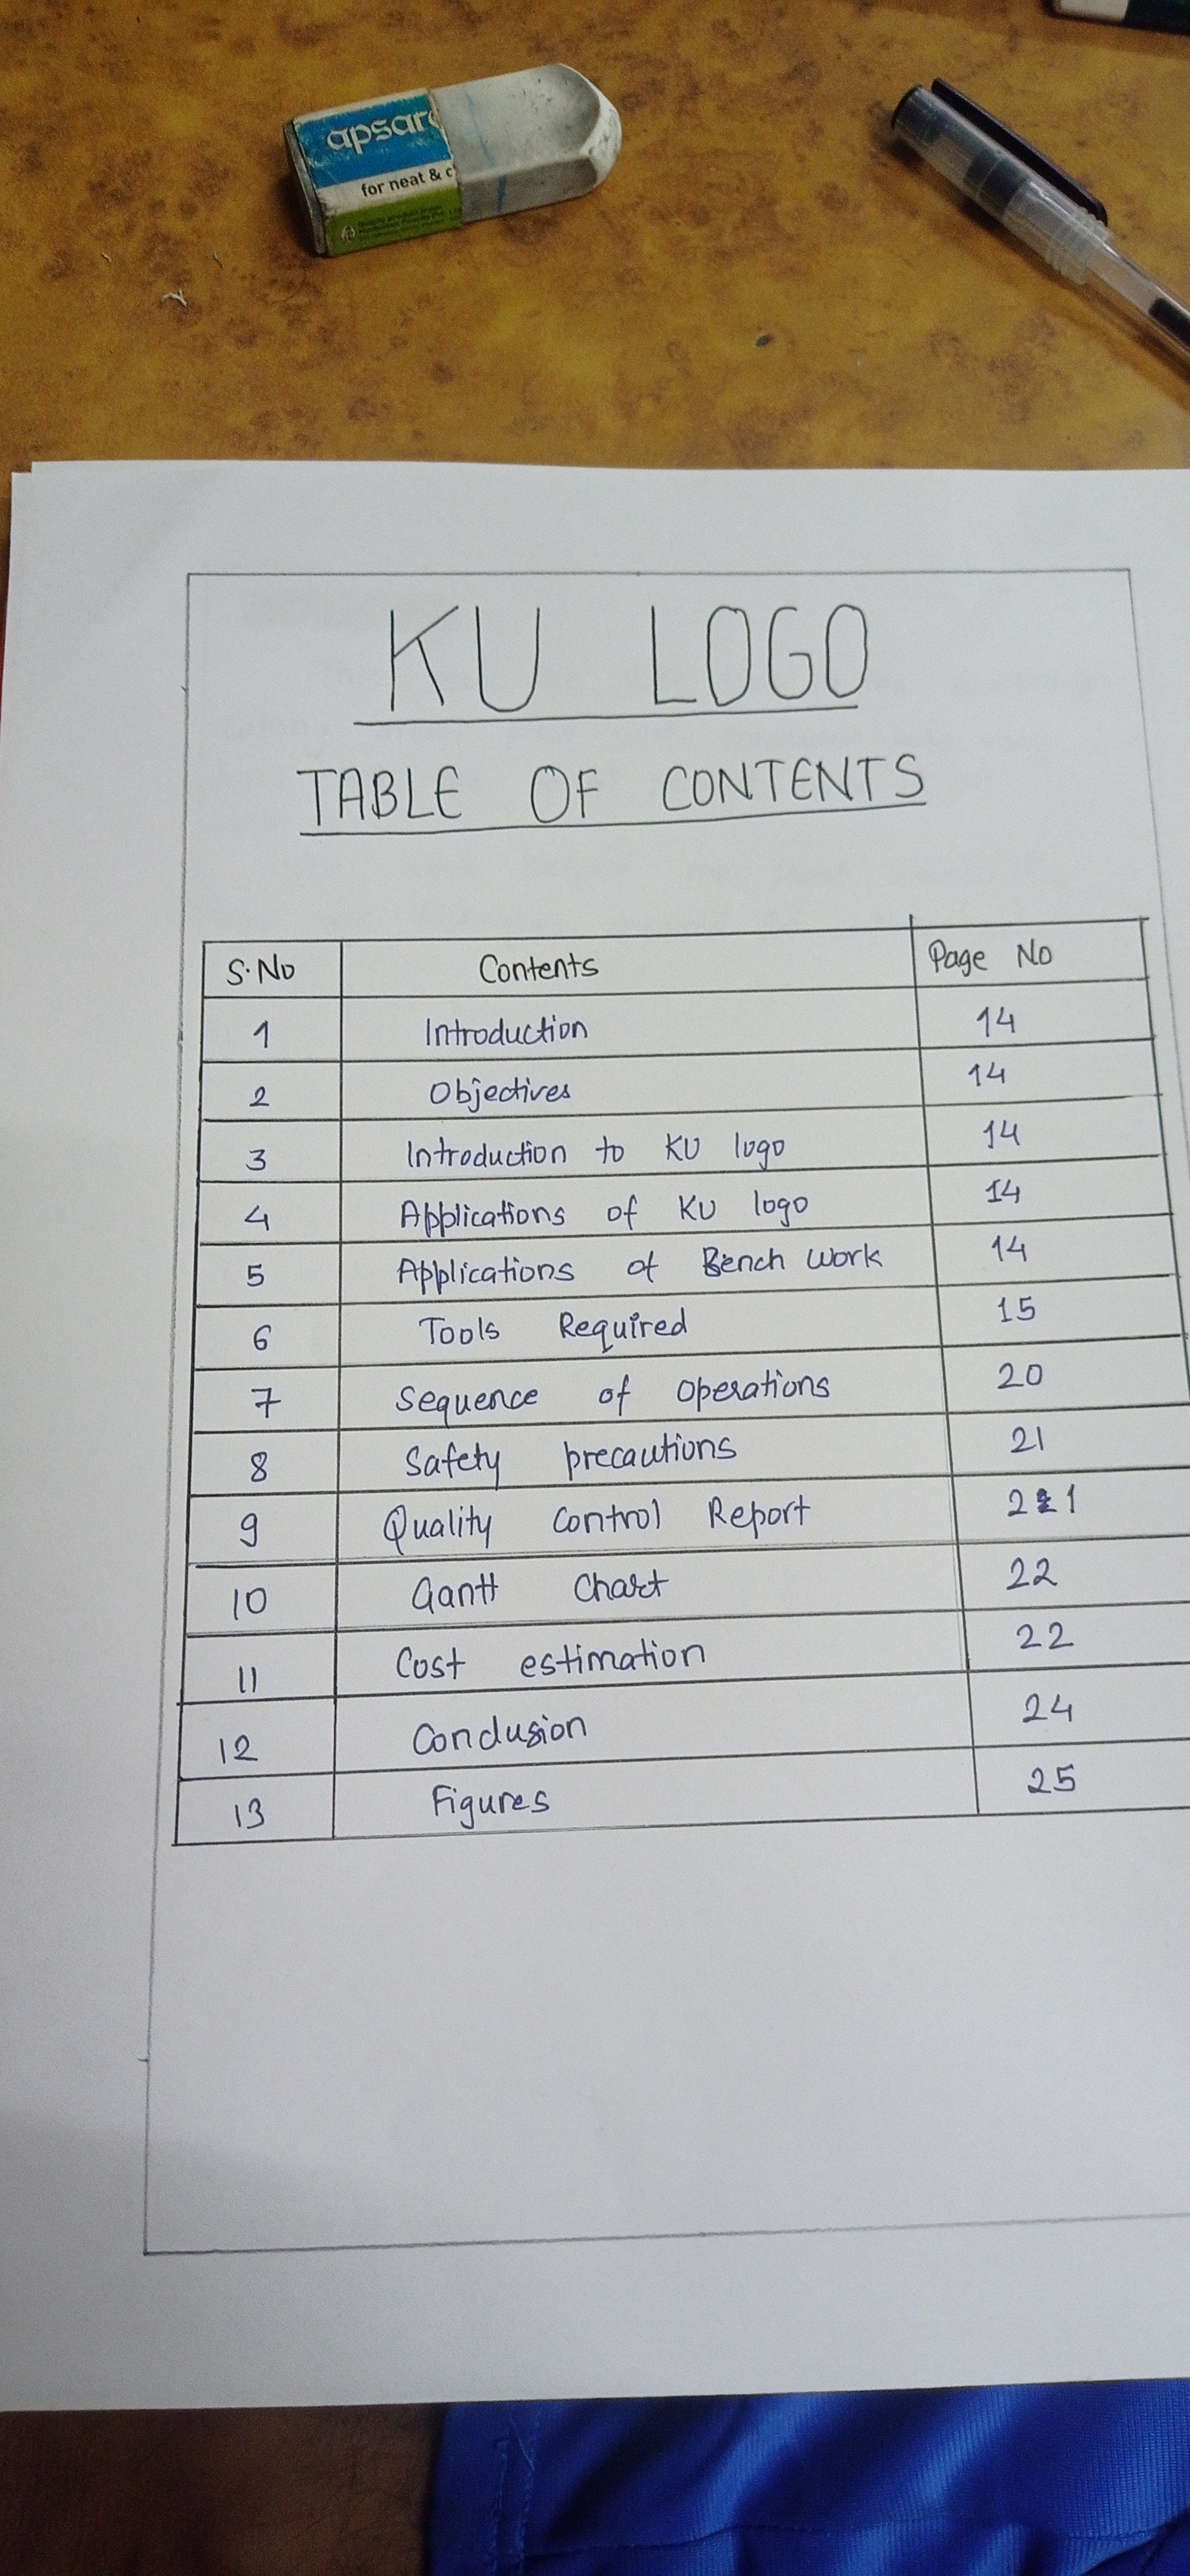 apsar
for neat & c
KU LOGO
TABLE OF CONTENTS
S.No Contents Page No
1 Introduction 14
2 Objectives 14
3 Introduction to KU logo 14
4 Applications of KU logo 14
5 Applications of Bench work 14
6 Tools Required 15
7 Sequence of Operations 20
8 Safety precautions 21
9 Quality Control Report 21
10 Gantt Chart 22
11 Cost estimation 22
12 Conclusion 24
13 Figures 25